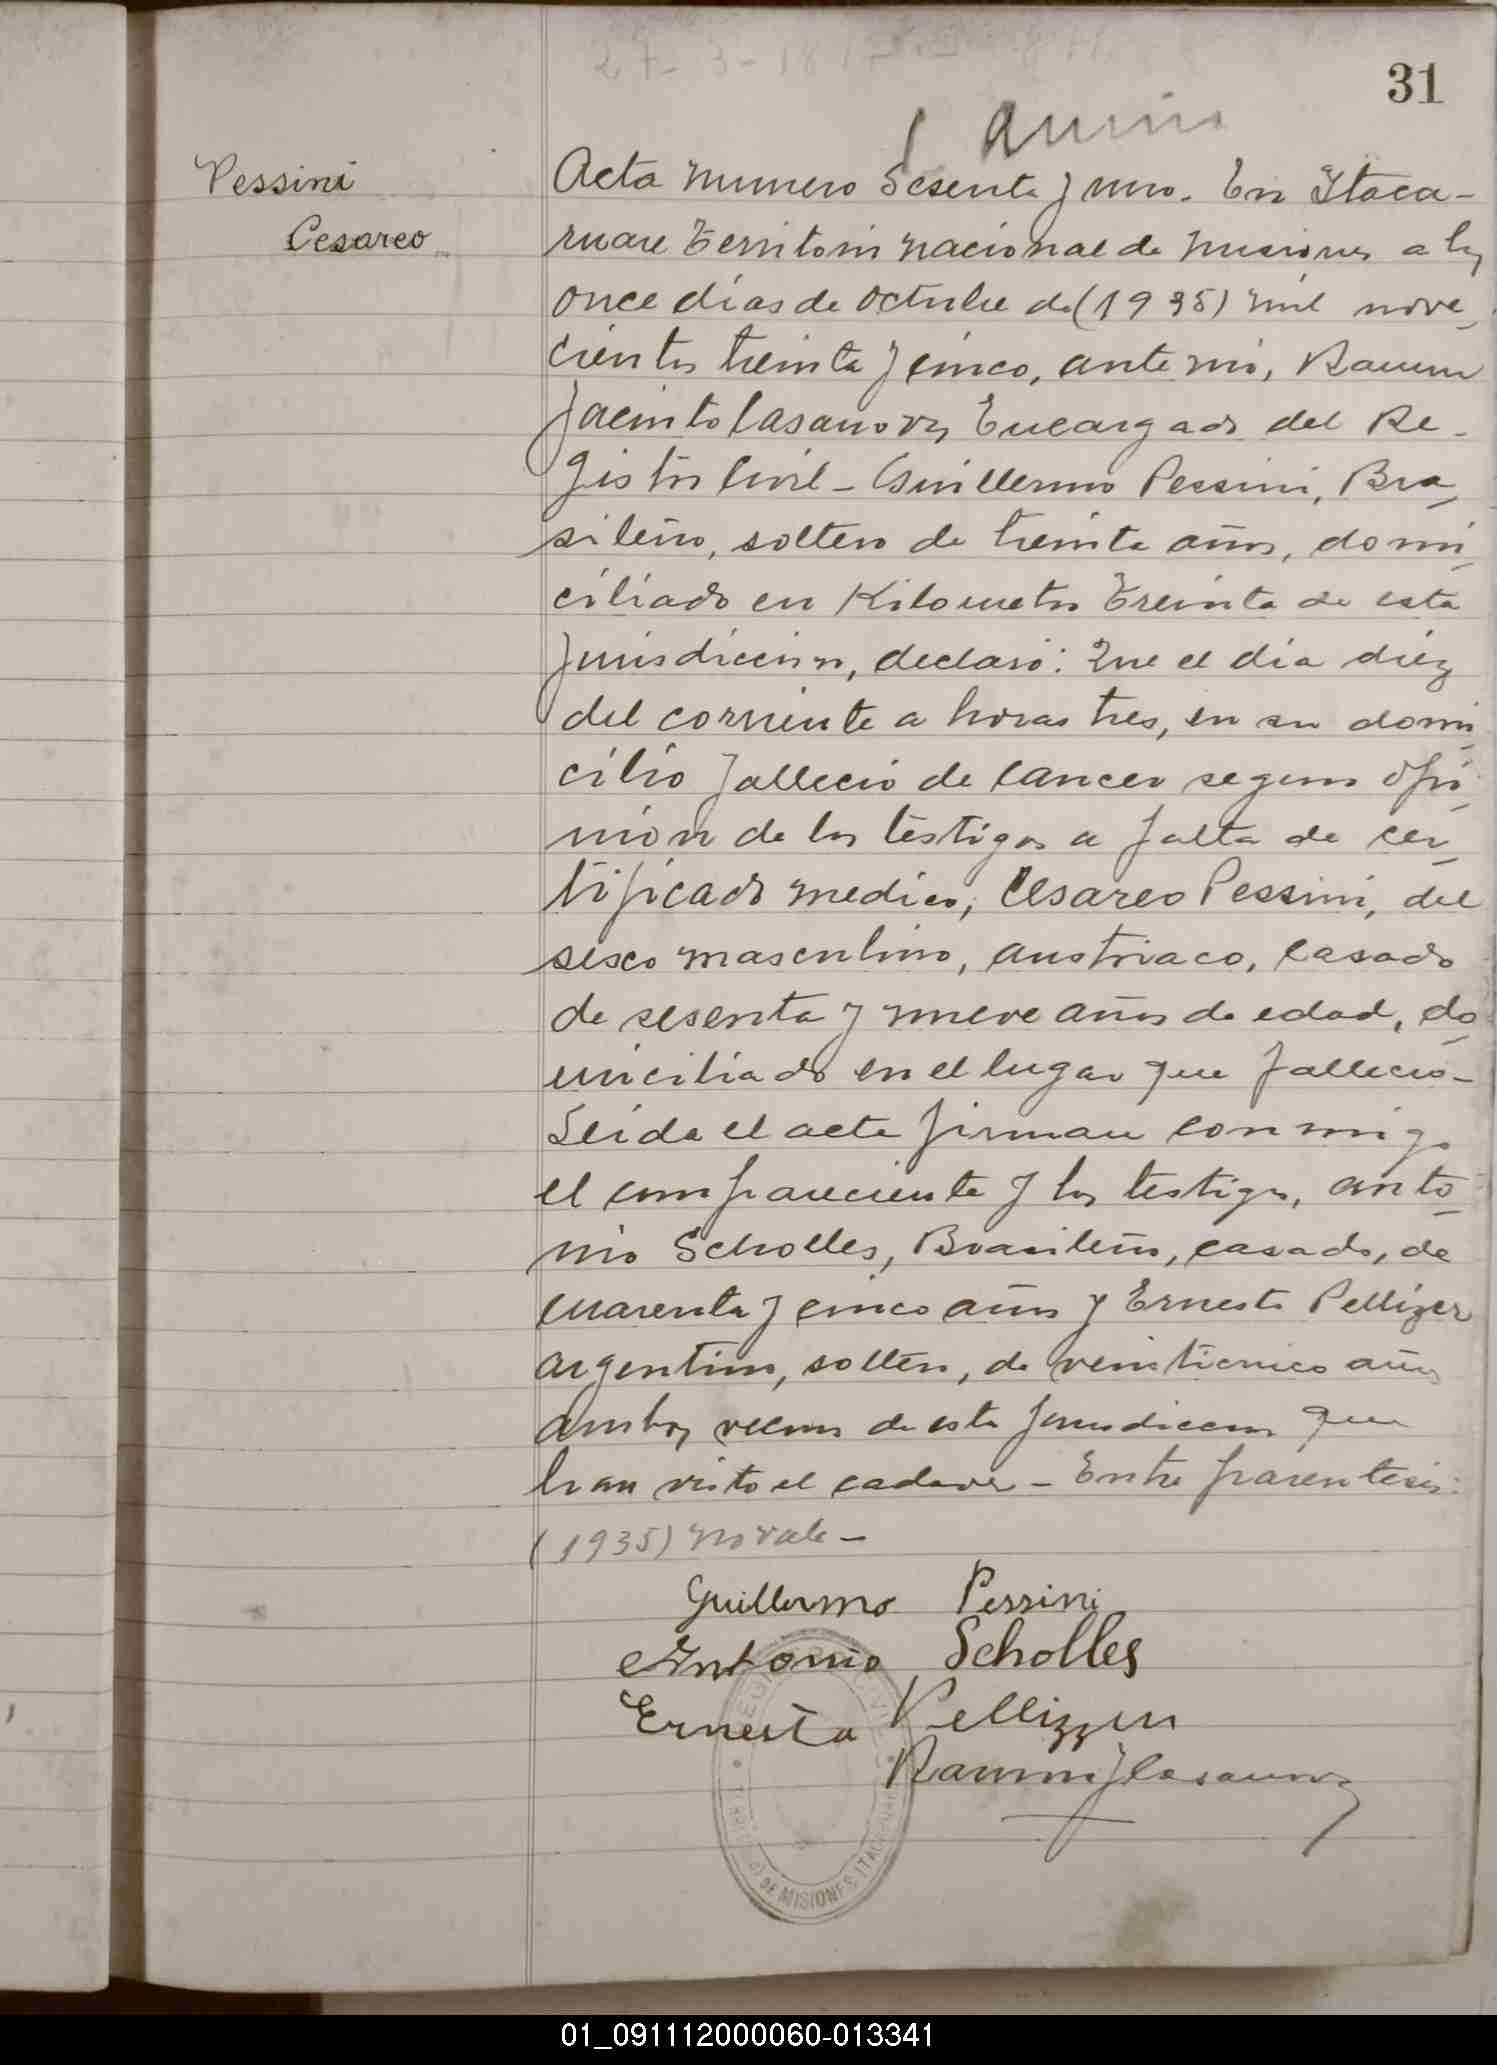 31
Pessini
Cesareo
Acta numero Sesenta y uno. En Itaca-
ruare Territorio nacional de Misiones a los
once días de octubre de (1935) mil nove-
cientos treinta y cinco, ante mi, Ramon
Jacinto Casanova, Encargado del Re-
gistro Civil - Guillermo Pessini, Bra-
sileño, soltero de treinta años, domi-
ciliado en Kilometro Treinta de esta
Jurisdiccion, declaró: Que el día diez
del corriente a horas tres, en su domi-
cilio falleció de cancer segun opi-
nion de los testigos a falta de cer-
tificado medico, Cesareo Pessini, del
sexo masculino, austriaco, casado
de sesenta y nueve años de edad, do-
miciliado en el lugar que falleció-
Leida el acta firman conmigo
el compareciente y los testigos, anto-
nio Scholles, Brasileño, casado, de
cuarenta y cinco años y Ernesto Pellizer
argentino, soltero, de veinticinco años
ambos vecinos de esta Jurisdiccion que
han visto el cadaver - Entre parentesis:
(1935) no vale -
Guillermo Pessini
Antonio Scholles
Ernesto Pellizzer
Ramon J Casanova
DE MISIONES
01_091112000060-013341